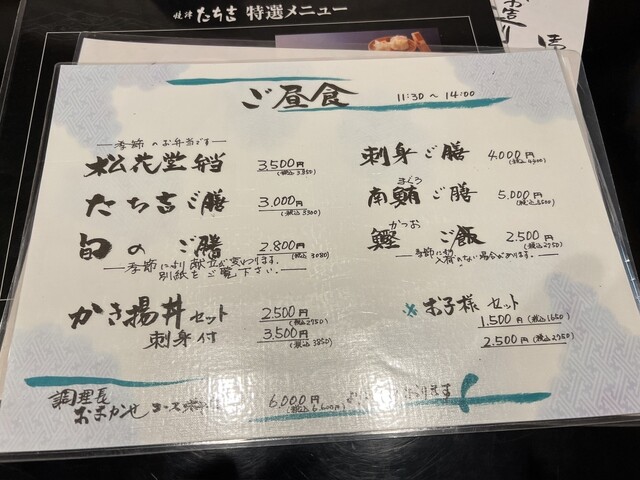 焼津 たち吉 特選メニュー
お造り
ご昼食
11:30 〜 14:00
季節のお弁当です
松花堂弁当
3,500円
(税込 3850)
たち吉ご膳
3,000円
(税込 3300)
旬のご膳
2,800円
(税込 3080)
季節により献立が変わります。
別紙をご覧下さい。
かき揚丼セット
2,500円
(税込2750)
刺身付
3,500円
(税込 3850)
刺身ご膳
4,000円
(税込 4400)
まぐろ
南鮪ご膳
5,000円
(税込5500)
かつお
鰹ご飯
2,500円
(税込2750)
季節により
入荷のない場合があります。
※お子様セット
1,500円 (税込1650)
2,500円 (税込2750)
調理長
おまかせコース
6,000円
(税込 6,600円)
より
ります